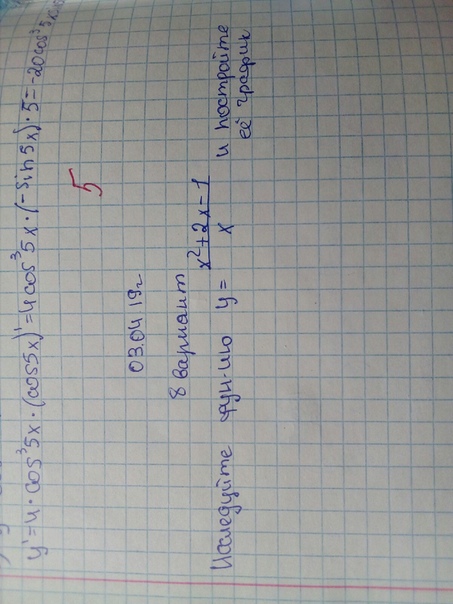 y' = 4 · cos³5x · (cos5x)' = 4 cos³5x · (-sin5x) · 5 = -20cos³5x
5
03.04 19г
8 вариант
Исследуйте фун-ию y = (x²+2x-1)/x и постройте
её график